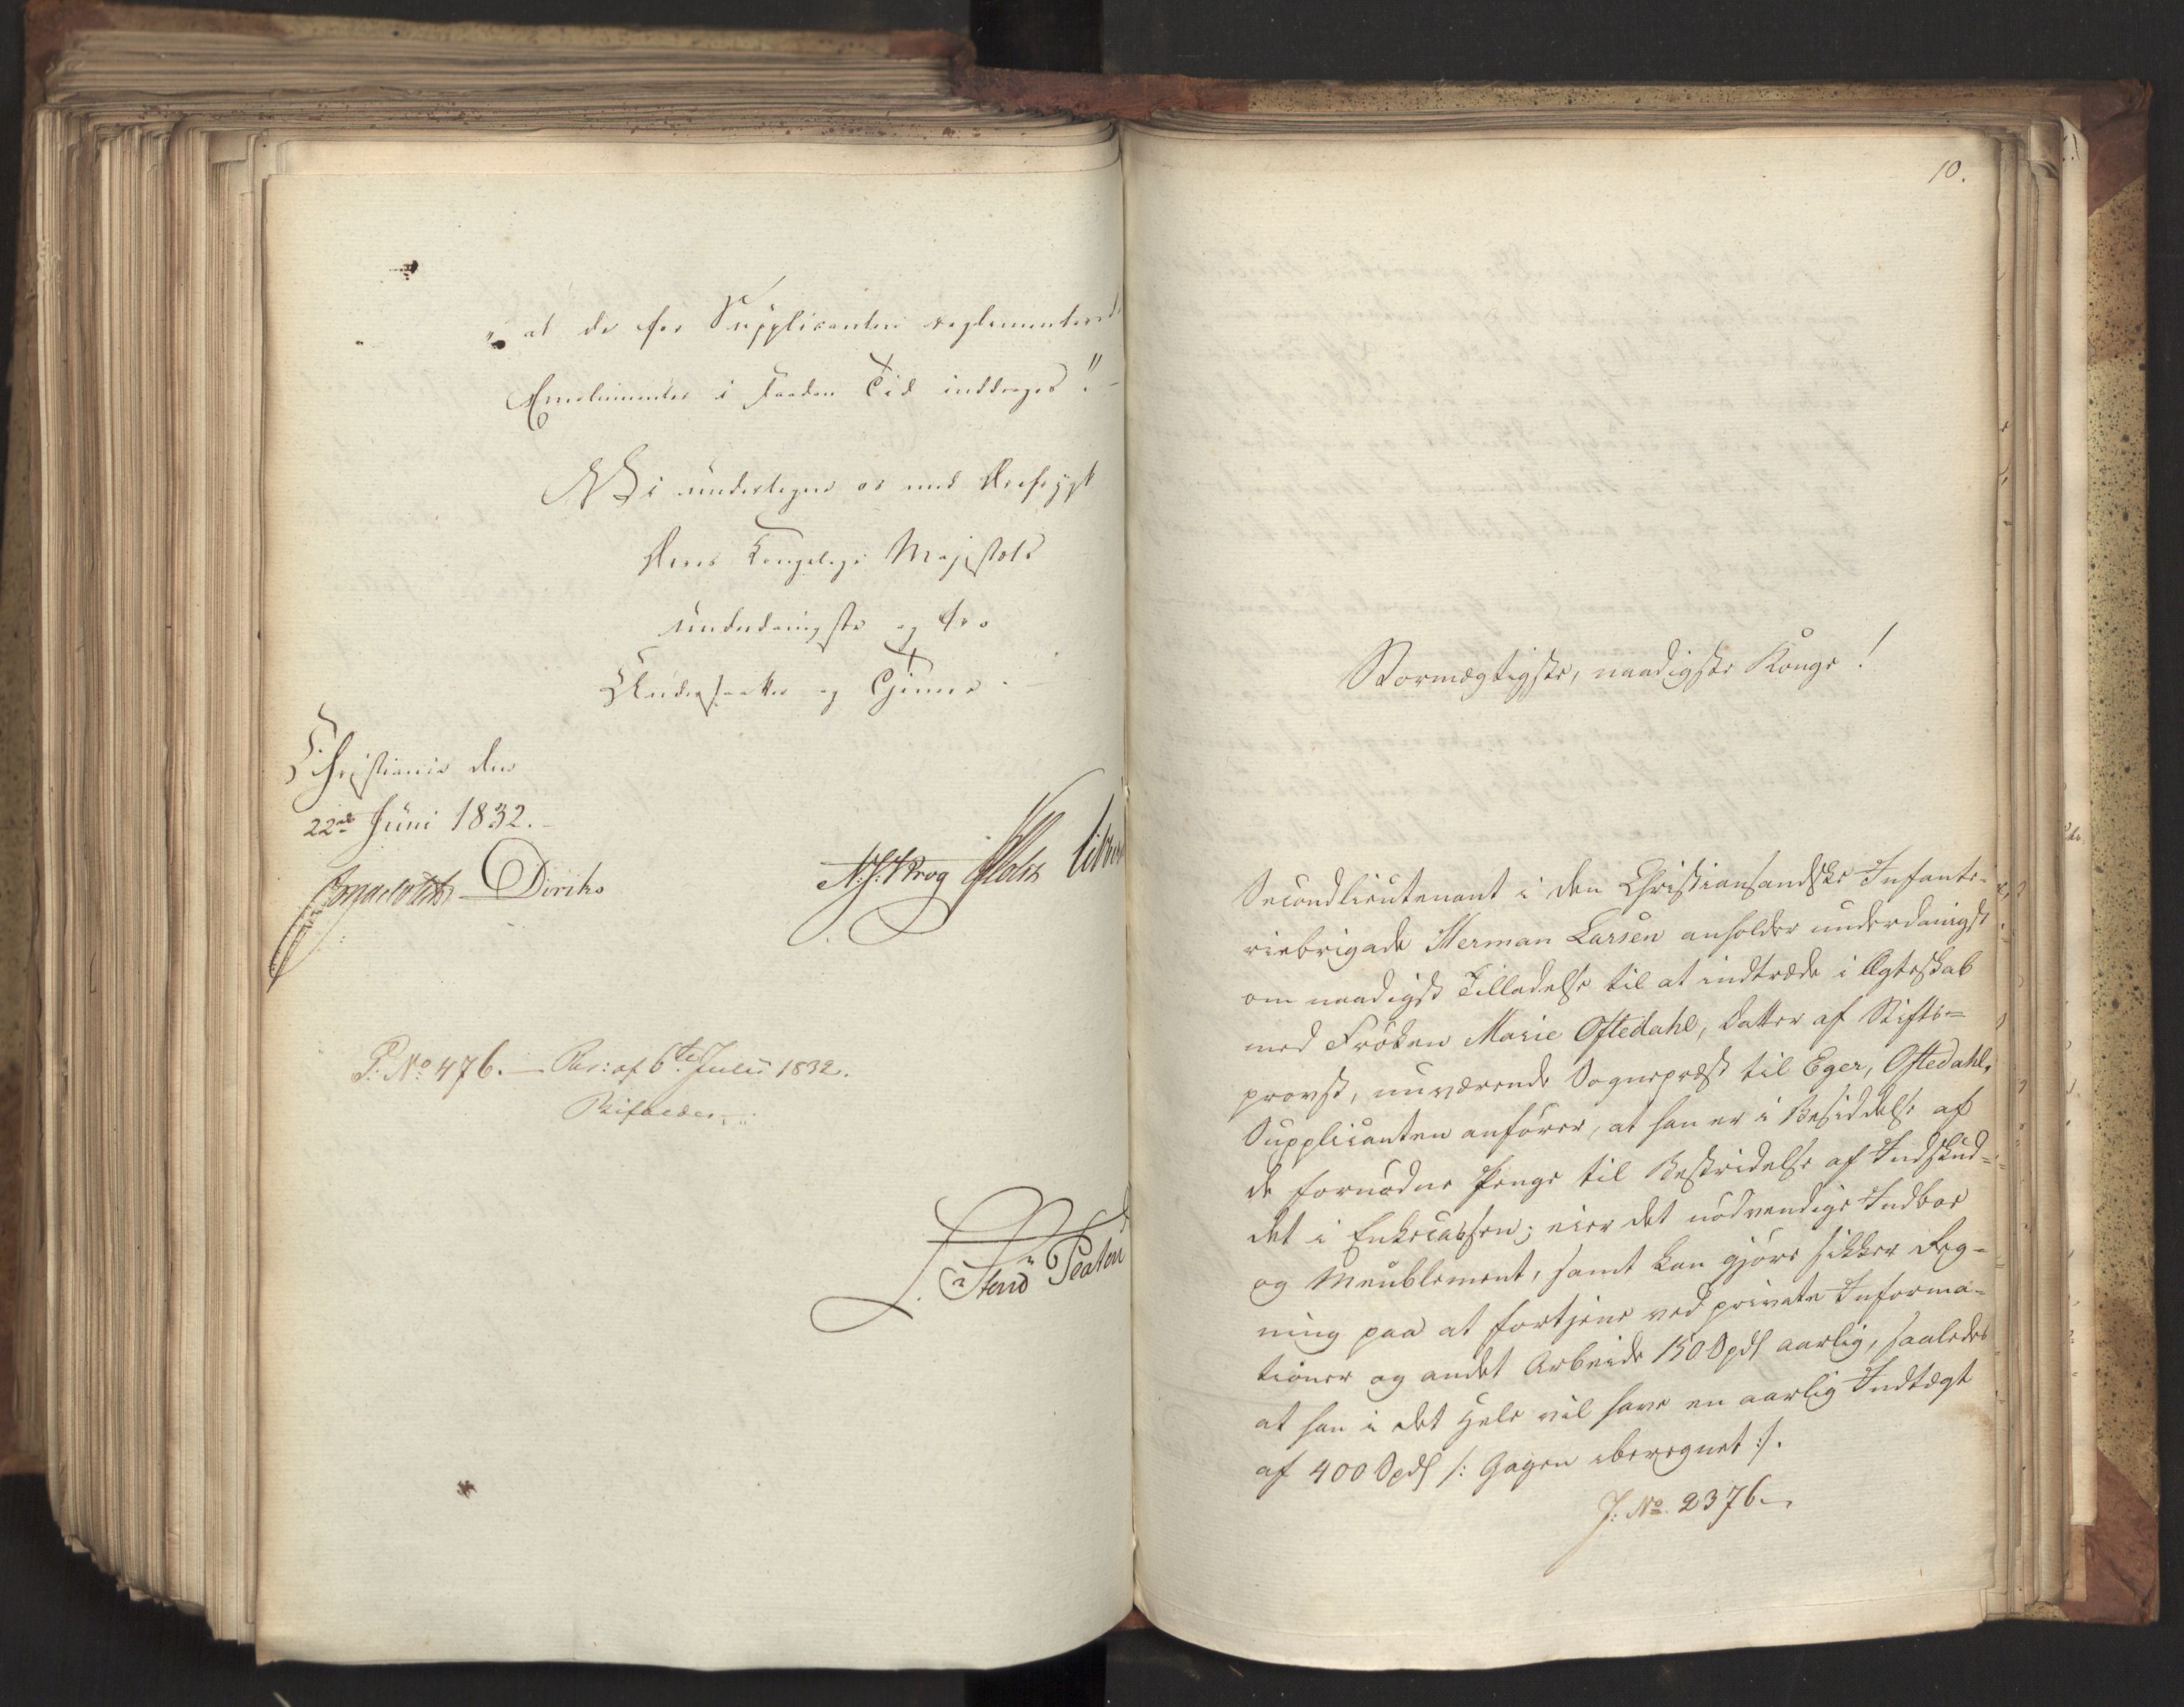 "at de for Supplicanten reglementerede
Emolumenter i saadan Tid inddrages".-
Vi undertegne os med Ærefrygt
Deres Kongelige Majestæts
underdanigste og tro
Undersaatter og Tjenere.
Christiania den
22de Juni 1832.-
Diriks
N. J. Krog
P: No 476. - Res: af 6te Julii 1832.
Bifaldes.
10.
Stormægtigste, naadigste Konge!
Secondlieutenant i den Christiansandske Infante-
riebrigade Herman Larsen anholder underdanigst
om naadigst Tilladelse til at indtræde i Ægteskab
med Frøken Marie Oftedahl, Datter af Stifts-
provst, nuværende Sognepræst til Eger, Oftedahl,
Supplicanten anfører, at han er i Besiddelse af
de fornødne Penge til Bestridelse af Indskud-
det i Enkecassen; eier det nødvendige Indboe
og Meublement, samt kan gjøre sikker Reg-
ning paa at fortjene ved private Informa-
tioner og andet Arbeide 150 Spdl aarlig, saaledes
at han i det Hele vil have en aarlig Indtægt
af 400 Spdl /: Gagen iberegnet :/.
J. No. 2376.